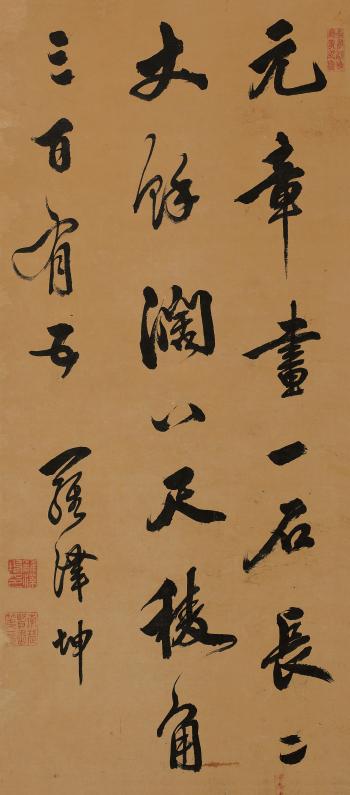 元章畫一石長二
丈餘濶八尺稜角
三百有五
羅澤坤